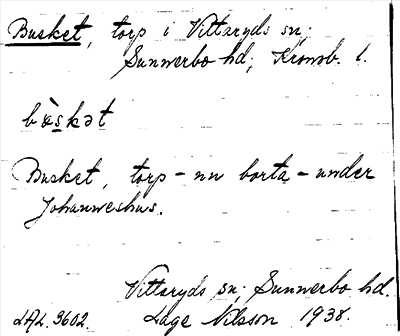 Busket, torp i Vittaryds sn;
Sunnerbo hd; Kronob. l.
bùskət
Busket, torp - nu borta - under
Johanneshus.
Vittaryds sn; Sunnerbo hd.
LAL. 3602. Åge Nilsson 1938.